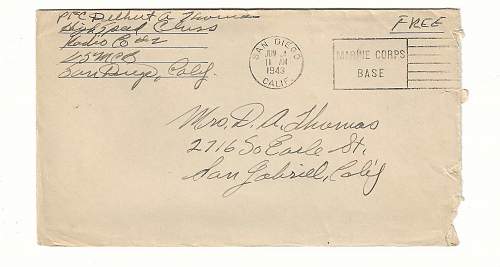 PFC Delbert A. Thomas
High Speed Class
Radio Co #2
USMCB
San Diego, Calif.
FREE
SAN DIEGO
JUN
11 AM
1943
CALIF.
MARINE CORPS
BASE
Mrs. D. A. Thomas
2716 So Earle St.
San Gabriel, Calif